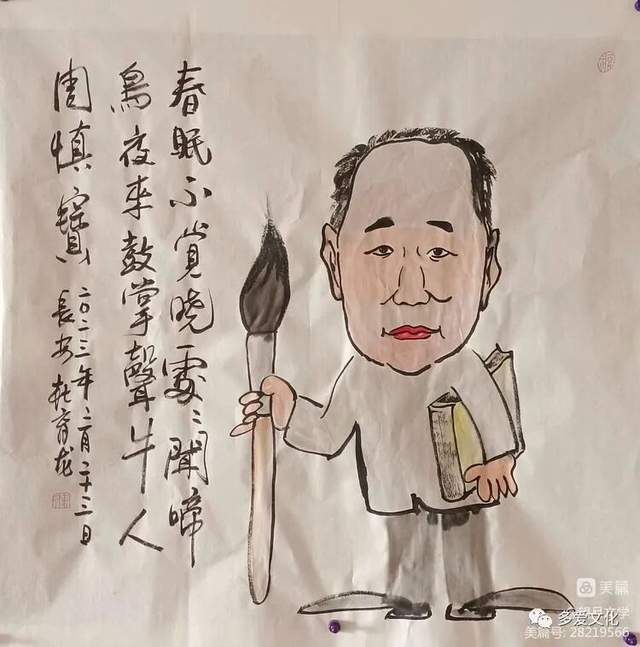 春眠不觉晓處〻聞啼
鳥夜来鼓掌聲牛人
周慎寶
二〇二三年二月二十三日
長安
美篇
多爱文化
美篇号: 28219566